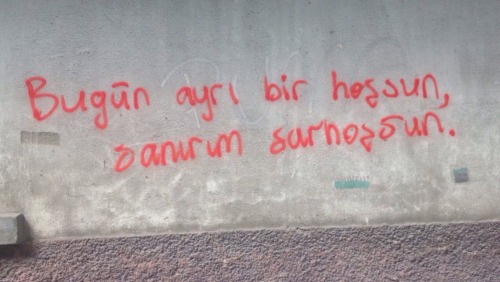 Bugün ayrı bir hoşsun,
sanırım sarhoşsun.